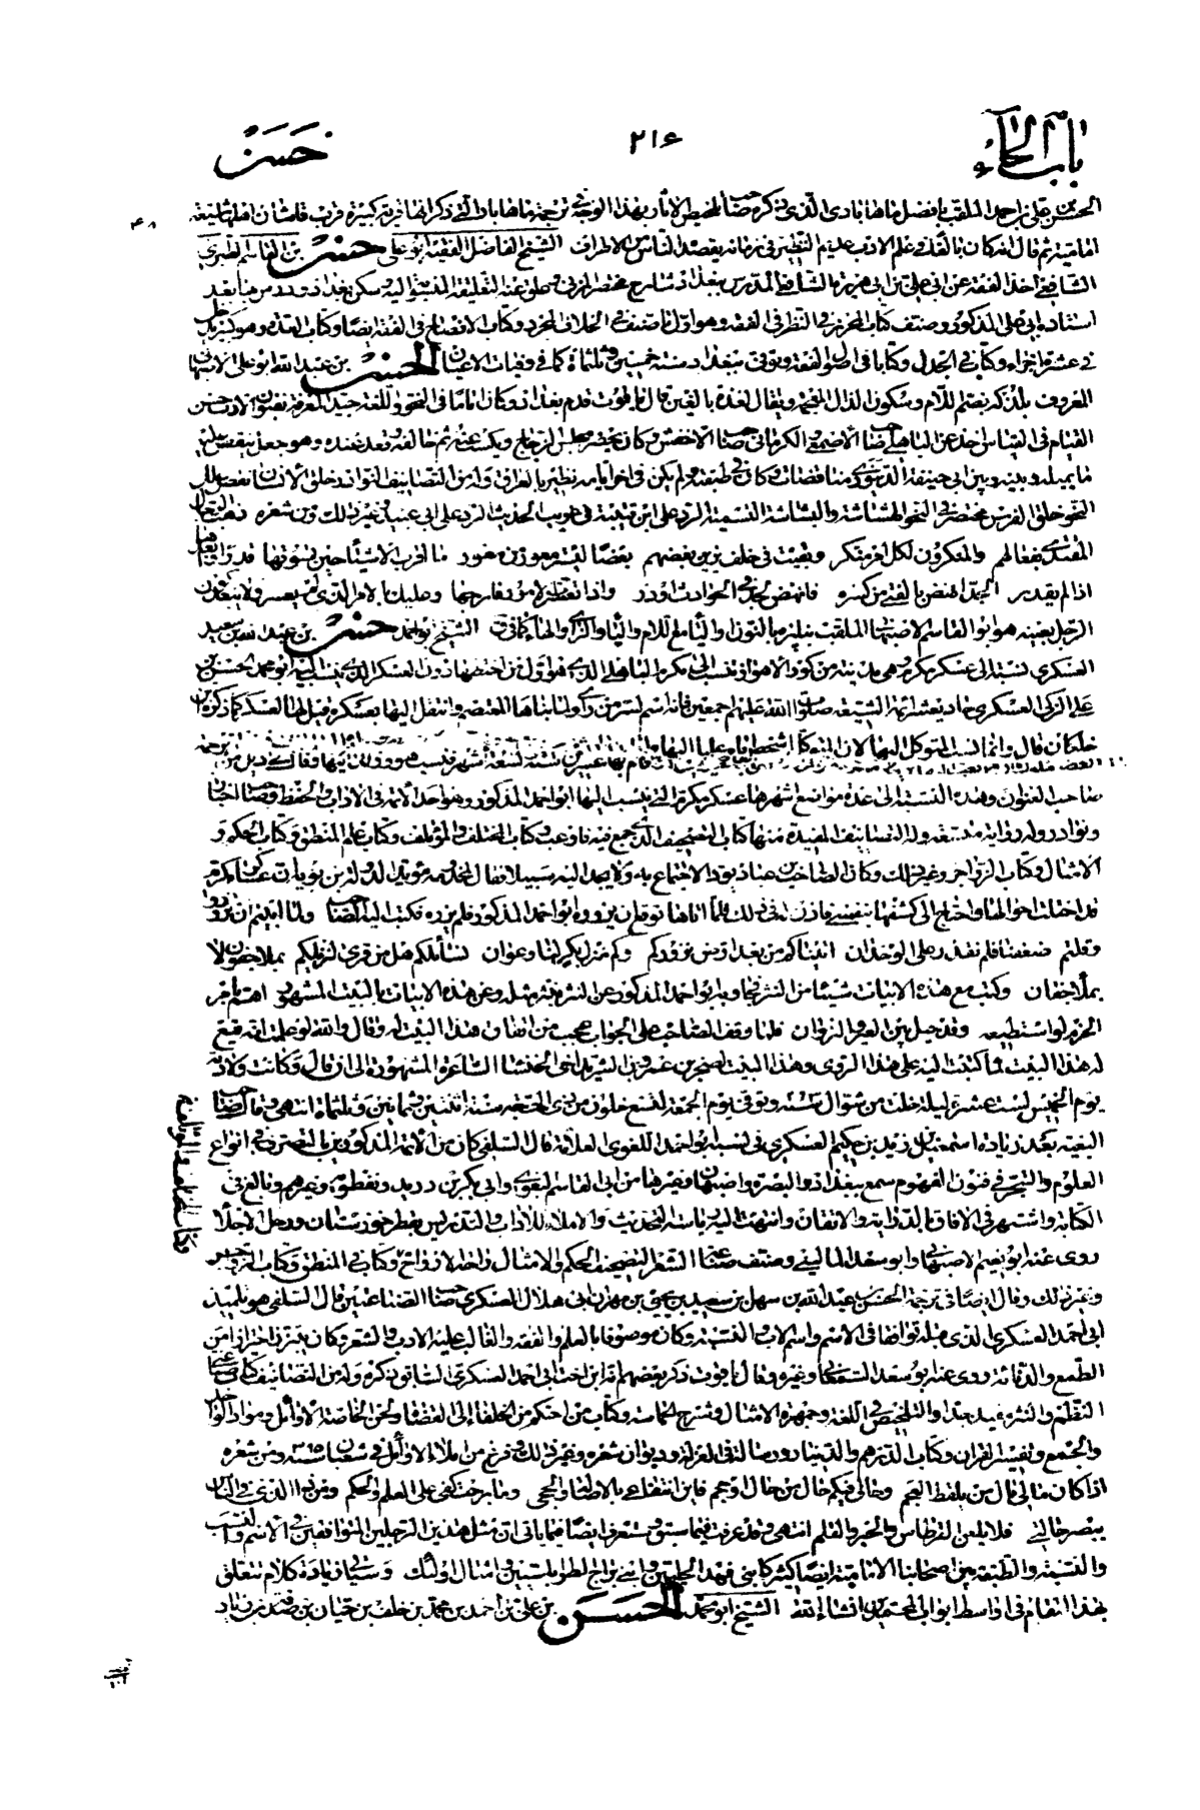 باب الحاء
٢١۶
حسن
الحسن بن علي بن احمد الملقب بافضل ماهابادى الذى ذكره صاحب تلخيص الاثار بهذا الوجه في ترجمة ماهاباد التى ذكر انها قرية كبيرة قرب قاشان اهلها شيعة
امامية ثم قال انه كان بالغا في علم الادب عديم النظير في زمانه يقصده الناس من الاطراف الشيخ الفاضل الفقيه ابو على حسن بن القاسم الطبري
الشافعي اخذ الفقه عن ابي علي بن ابي هريرة الشافعي المدرس ببغداد شارح مختصر المزني وعلق عنه التعليقة المنسوبة اليه وسكن بغداد ودرس بها بعد
استاده ابي علي المذكور وصنف كتاب المحرر في النظر في الفقه وهو اول ما صنف في الخلاف المجرد وكتاب الافصاح في الفقه ايضا وكتاب العدة وهو كبير يدخل
في عشرة اجزاء وكتابا في الجدل وكتابا في اصول الفقه وتوفى ببغداد سنة خمسين وثلثمأة كما في وفيات الاعيان الحسن بن عبد الله ابو على الاصبهانى
المعروف بلذكه بضم اللام وسكون الذال المعجمة ويقال لغدة بالغين قال ياقوت قدم بغداد وكان اماما في النحو واللغة جيد المعرفة بفنون الادب حسن
القيام في القياس اخذ عن الباهلي صاحب الاصمعي الكرماني صاحب الاخفش وكان يحضر مجلس الزجاج ويكتب عنه ثم خالفه وقعد عنه وهو جعل ينقض عليه
ما يمليه وبينه وبين ابي حنيفة الدينوري مناقضات وكان في طبقته ولم يكن في اخر ايامه نظير بالعراق وله من التصانيف النوادر خلق الانسان نقض علل
النحو خلق الفرس مختصر في النحو الهشاشة والبشاشة التسمية الرد على ابن قتيبة في غريب الحديث الرد على ابي عبيد وغير ذلك ومن شعره ذهب الرجال
المقتدى بفعالهم والمنكرون لكل امر منكر وبقيت في خلف يزين بعضهم بعضا ليستر معور من معور ما اقرب الاشياء حين يسوقها قدر وابعدها
اذا لم يقدر الجد انهض بالفتى من كسبه فانهض بجد في الحوادث او ذر واذا تعسرت الامور فارجها وعليك بالامر الذي لم يعسر ولا يبعد كون
الرجل بعينه هو ابو القاسم الاصبهاني الملقب
الشيخ ابو احمد حسن بن عبد الله بن سعيد
العسكري نسبة الى عسكر مكرم وهي مدينة من كور الاهواز نسب الى مكرم الباهلي الذى هو اول من اختطها دون العسكر الذى ينسب اليه ابو محمد الحسن بن
علي الزكي العسكري حادي عشر ائمة الشيعة صلوات الله عليهم اجمعين فانه اسم لسر من رأى ولما بناها المعتصم وانتقل اليها بعسكره قيل لها العسكر كما ذكره ابن
خلكان قال وانما نسب المتوكل اليها لان المتوكل اشخص اباه عليا اليها
صاحب العنوان وهذه النسبة الى عدة مواضع اشهرها عسكر مكرم التي ينسب اليها ابو احمد المذكور وهو احد الائمة في الاداب والحفظ وصاحب اخبار
ونوادر وله رواية متسعة وله التصانيف المفيدة منها كتاب التصحيف الذى جمع فيه فاوعب وكتاب المختلف والمؤتلف وكتاب علم المنطق وكتاب الحكم و
الامثال وكتاب الزواجر وغير ذلك وكان الصاحب بن عباد يود الاجتماع به ولا يجد اليه سبيلا فقال لمخدومه مؤيد الدولة بن بويه ان عسكر مكرم
قد اختلت احوالها واحتاج الى كشفها بنفسي فاذن له في ذلك فلما اتاها توقع ان يزوره ابو احمد المذكور فلم يزره فكتب اليه الصاحب ولما ابيتم ان تزوروا
وقلتم ضعفنا فلم نقدر على الوخدان اتيناكم من بعد ارض نزوركم وكم منزل بكر لنا وعوان نسائلكم هل من قرى لنزيلكم بملا جفون لا
بملأ جفان وكتب مع هذه الابيات شيئا من النثر فجاوبه ابو احمد المذكور عن النثر بنثر مثله وعن هذه الابيات بالبيت المشهور اهم بامر
الحزم لو استطيعه وقد حيل بين العير والنزوان فلما وقف الصاحب على الجواب عجب من اتفاق هذا البيت له وقال والله لو علمت انه يقع
له هذا البيت لما كتبت اليه على هذا الروى وهذا البيت لصخر بن عمرو بن الشريد اخي الخنساء الشاعرة المشهورة الى ان قال وكانت ولادته
يوم الخميس لست عشرة ليلة خلت من شوال سنة وتوفى يوم الجمعة لسبع خلون من ذى الحجة سنة اثنتين وثمانين وثلثمأة انتهى وقال صاحب
البغية بعد زيادة اسمعيل بن زيد بن حكيم العسكري في نسبه ابو احمد اللغوى العلامة قال السلفى كان من الائمة المذكورين بالتصرف في انواع
العلوم والتبحر في فنون الفهوم سمع ببغداد والبصرة واصبهان وغيرها من ابي القاسم البغوي وابي بكر بن دريد ونفطويه وغيرهم وبالغ في
الكتابة واشتهر في الافاق بالدراية والاتقان وانتهت اليه رياسة التحديث والاملاء للاداب والتدريس بقطر خوزستان ورحل الاجلاء
روى عنه ابو نعيم الاصبهاني وابو سعد الماليني وصنف صناعة الشعر التصحيف الحكم والامثال راحة الارواح وكتابا في المنطق وكتاب الزواجر
وغير ذلك وقال ايضا في ترجمة الحسن بن عبد الله بن سهل بن سعيد بن يحيى بن مهران ابي هلال العسكري صاحب الصناعتين قال السلفى هو تلميذ
ابي احمد العسكري الذى قبله توافقا في الاسم واسم الاب والنسبة وكان موصوفا بالعلم والفقه والغالب عليه الادب والشعر وكان يتبزز احترازا من
الطمع والدناءة روى عنه ابو سعد السمعاني وغيره وقال ياقوت ذكر بعضهم انه ابن اخت ابي احمد العسكري السابق ذكره وله من التصانيف كتاب صناعتي
النظم والنثر مفيد جدا والتلخيص في اللغة وجمهرة الامثال وشرح الحماسة وكتاب من احتكم من الخلفاء الى القضاة ولحن الخاصة الاوائل ونوادر الواحد
والجمع وتفسير القران وكتاب الدرهم والدينار ورسالة في العزلة وديوان شعره وغير ذلك وفرغ من املاء الاوائل في شعبان سنة ٣٩٥ ومن شعره
اذا كان مالي مال من يلقط العجم وحالي فيكم حال من حاك او حجم فاين انتفاعي بالاصالة والحجى وما ربحت كفي على العلم والحكم ومن ذا الذى في الناس
يبصر حالتي فلا يلعن القرطاس والحبر والقلم انتهى وقد عرفت فيما سبق وستعرف ايضا فيما ياتى ان مثل هذين الرجلين المتوافقين في الاسم والنسب
والنسبة والطبقة من اصحابنا الامامية ايضا كثير كابني فهد الحليين وابني براج الطرابلسيين وامثال اولئك وسياتي زيادة كلام تتعلق
بهذا المقام في اواسط ابواب المحمدين انشاء الله الشيخ ابو محمد الحسن بن علي بن احمد بن محمد بن خلف بن حيان بن صدقة بن زياد